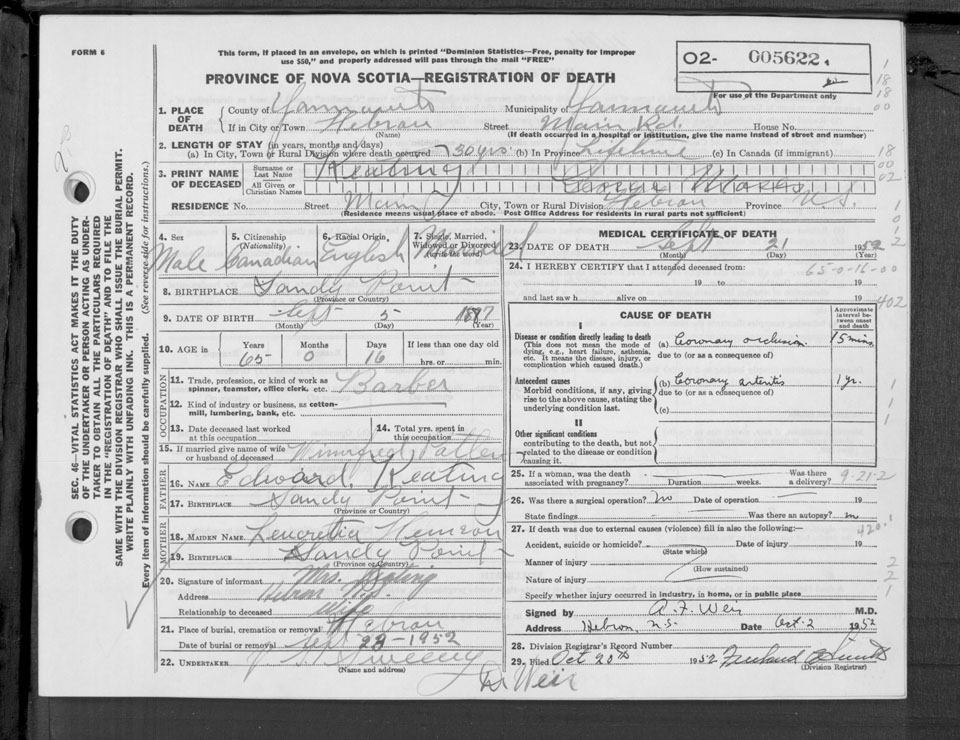 FORM 6
This form, if placed in an envelope, on which is printed "Dominion Statistics—Free, penalty for improper
use $50," and properly addressed will pass through the mail "FREE"
02- 005622
PROVINCE OF NOVA SCOTIA—REGISTRATION OF DEATH
For use of the Department only
1. PLACE OF DEATH { County of Yarmouth Municipality of Yarmouth
If in City or Town Hebron Street Main Rd. House No.
(Name) (If death occurred in a hospital or institution, give the name instead of street and number)
2. LENGTH OF STAY (in years, months and days)
(a) In City, Town or Rural Division where death occurred 30 yrs. (b) In Province Lifetime (c) In Canada (if immigrant)
3. PRINT NAME OF DECEASED { Surname or Last Name Keating
All Given or Christian Names
RESIDENCE No. Street Main City, Town or Rural Division Hebron Province N.S.
(Residence means usual place of abode. Post Office Address for residents in rural parts not sufficient)
4. Sex Male
5. Citizenship (Nationality) Canadian
6. Racial Origin English
7. Single, Married, Widowed or Divorced (write the word) Married
8. BIRTHPLACE Sandy Point
(Province or Country)
9. DATE OF BIRTH Sept 5 1887
(Month) (Day) (Year)
10. AGE in { Years 65 Months 0 Days 16 If less than one day old
hrs. or min.
OCCUPATION
11. Trade, profession, or kind of work as
spinner, teamster, office clerk, etc. Barber
12. Kind of industry or business, as cotton-
mill, lumbering, bank, etc.
13. Date deceased last worked
at this occupation
14. Total yrs. spent in
this occupation
15. If married give name of wife
or husband of deceased Winnifred Patten
FATHER
16. NAME Edward Keating
17. BIRTHPLACE Sandy Point
(Province or Country)
MOTHER
18. MAIDEN NAME Lucretia
19. BIRTHPLACE Sandy Point
(Province or Country)
20. Signature of informant Mrs. Keating
Address Hebron N.S.
Relationship to deceased wife
21. Place of burial, cremation or removal Hebron
Date of burial or removal Sept 23-1952
22. UNDERTAKER Sweeney
(Name and address)
Dr Weir
MEDICAL CERTIFICATE OF DEATH
23. DATE OF DEATH Sept 21 1952
(Month) (Day) (Year)
24. I HEREBY CERTIFY that I attended deceased from:
65-0-16-00
19 to 19
and last saw h alive on 19
402
CAUSE OF DEATH
Approximate interval between onset and death
I
Disease or condition directly leading to death
(This does not mean the mode of
dying, e.g., heart failure, asthenia,
etc. It means the disease, injury, or
complication which caused death.)
(a) Coronary occlusion 15 mins.
due to (or as a consequence of)
Antecedent causes
Morbid conditions, if any, giving
rise to the above cause, stating the
underlying condition last.
(b) Coronary arteritis 1 yr.
due to (or as a consequence of)
(c)
II
Other significant conditions
contributing to the death, but not
related to the disease or condition
causing it.
25. If a woman, was the death
associated with pregnancy? Duration weeks. Was there
a delivery?
9-21-2
26. Was there a surgical operation? no Date of operation 19
State findings Was there an autopsy? no
27. If death was due to external causes (violence) fill in also the following:—
420.1
Accident, suicide or homicide? Date of injury 19
(State which)
Manner of injury
(How sustained)
Nature of injury
Specify whether injury occurred in industry, in home, or in public place
Signed by A. F. Weir M.D.
Address Hebron, N.S. Date Oct-2 1952
28. Division Registrar's Record Number
29. Filed Oct 20th 1952
(Division Registrar)
SEC. 46—VITAL STATISTICS ACT MAKES IT THE DUTY
OF THE UNDERTAKER OR PERSON ACTING AS UNDER-
TAKER TO OBTAIN ALL THE PARTICULARS REQUIRED
IN THE "REGISTRATION OF DEATH" AND TO FILE THE
SAME WITH THE DIVISION REGISTRAR WHO SHALL ISSUE THE BURIAL PERMIT.
WRITE PLAINLY WITH UNFADING INK. THIS IS A PERMANENT RECORD.
Every item of information should be carefully supplied. (See reverse side for instructions.)